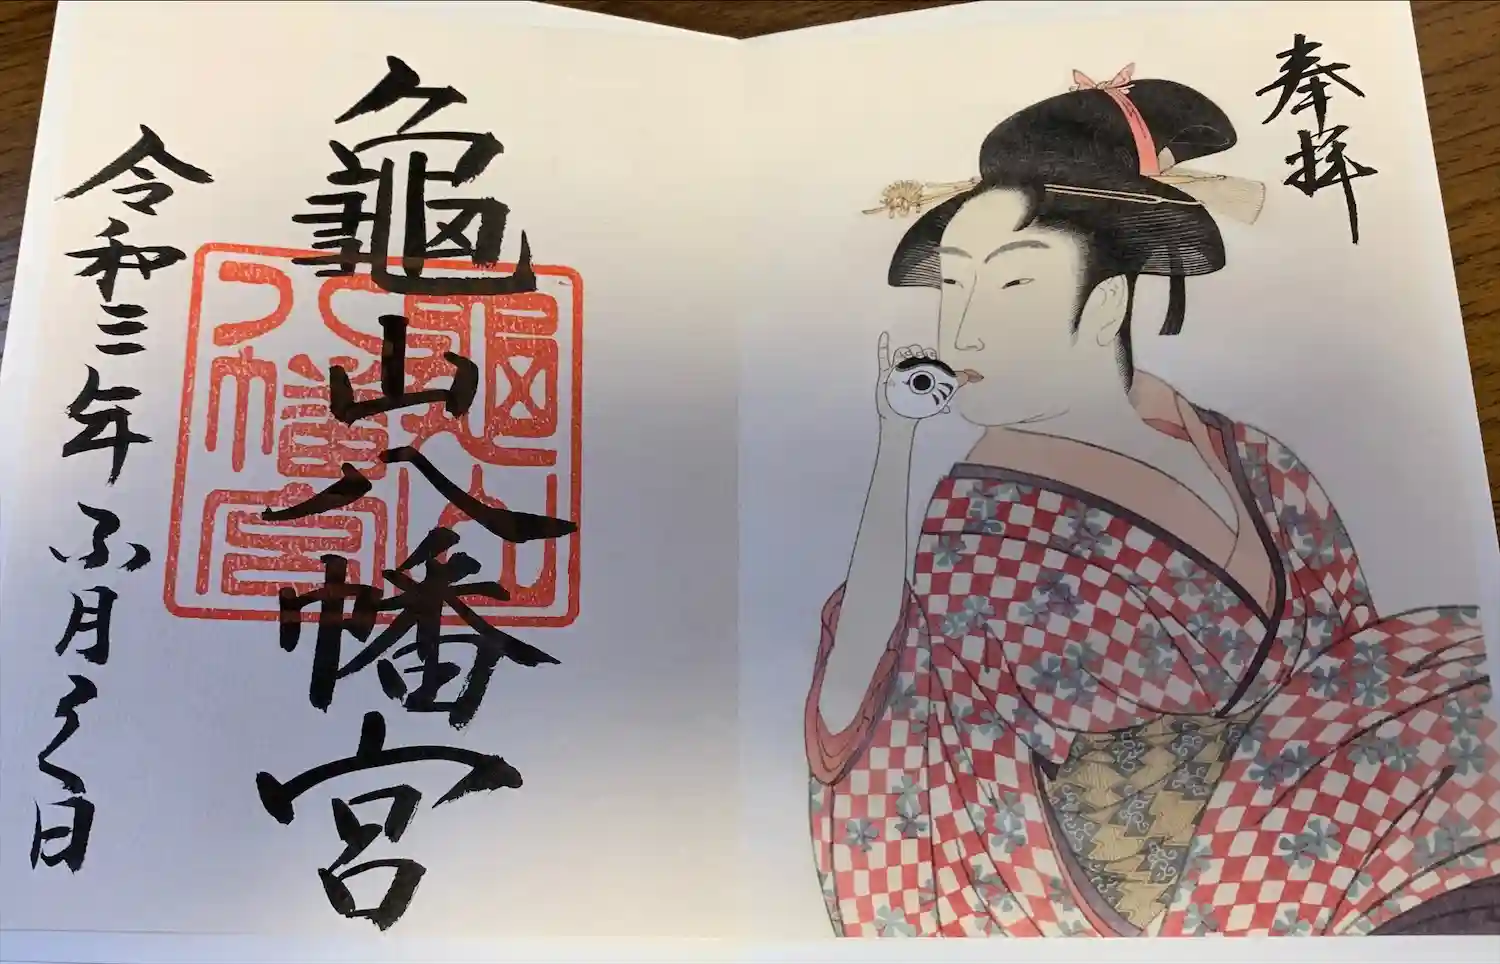 奉拝
龜山八幡宮
龜山
八幡宮
令和三年ふ月く日